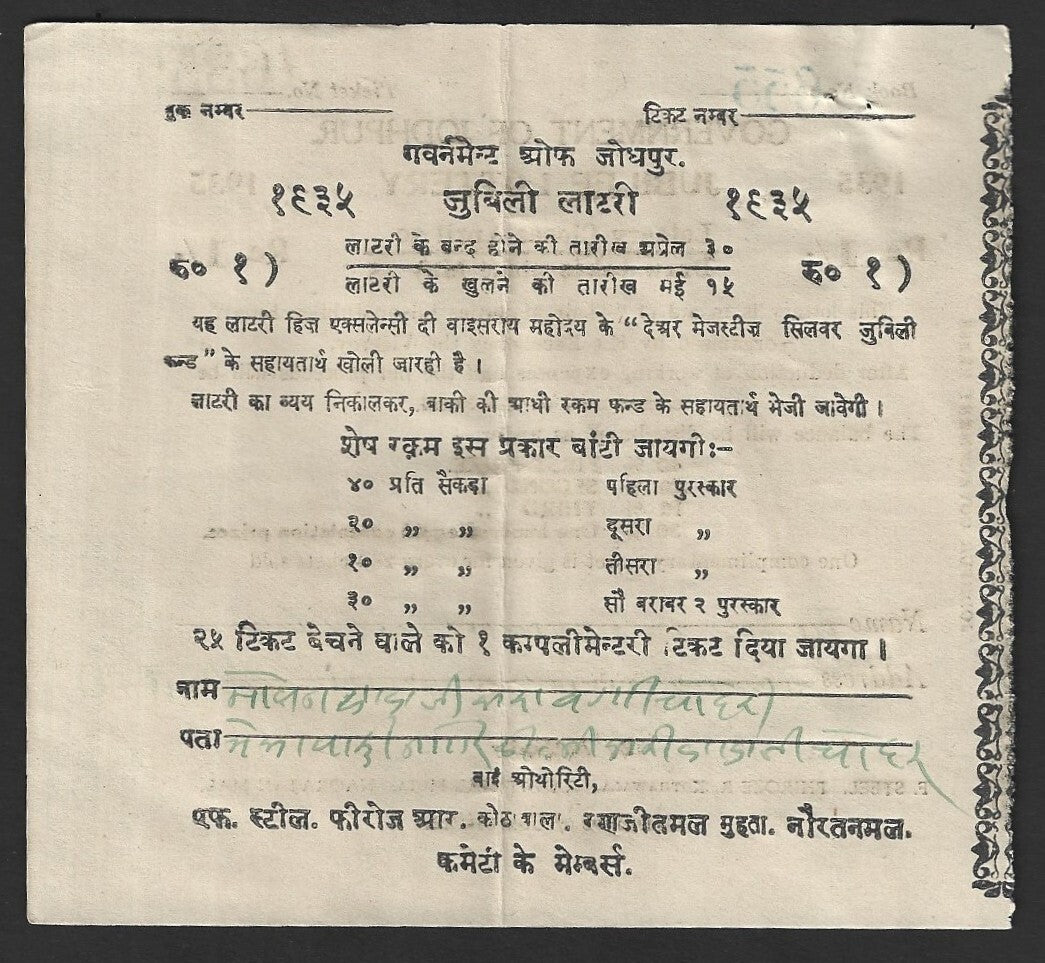 बुक नम्बर टिकट नम्बर
गवर्नमेन्ट ओफ जोधपुर.
१९३५ जुबिली लाटरी १९३५
रु० १) लाटरी के बन्द होने की तारीख अप्रेल ३० रु० १)
लाटरी के खुलने की तारीख मई १५
यह लाटरी हिज एक्सलेन्सी दी वाइसराय महोदय के “देअर मेजस्टीज़ सिलवर जुबिली
फन्ड” के सहायतार्थ खोली जारही है ।
लाटरी का व्यय निकालकर, बाकी की आधी रकम फन्ड के सहायतार्थ भेजी जावेगी ।
शेष रक़म इस प्रकार बांटी जायगी:-
४० प्रति सैंकड़ा पहिला पुरस्कार
२० ,, ,, दूसरा ,,
१० ,, ,, तीसरा ,,
३० ,, ,, सौ बराबर २ पुरस्कार
२५ टिकट बेचने वाले को १ कम्पलीमेन्टरी टिकट दिया जायगा ।
नाम
पता
बाई ओथोरिटी,
एफ. स्टील. फीरोज आर. कोठावाला. रणजीतमल मुहता. नौरतनमल.
कमेटी के मेम्बर्स.